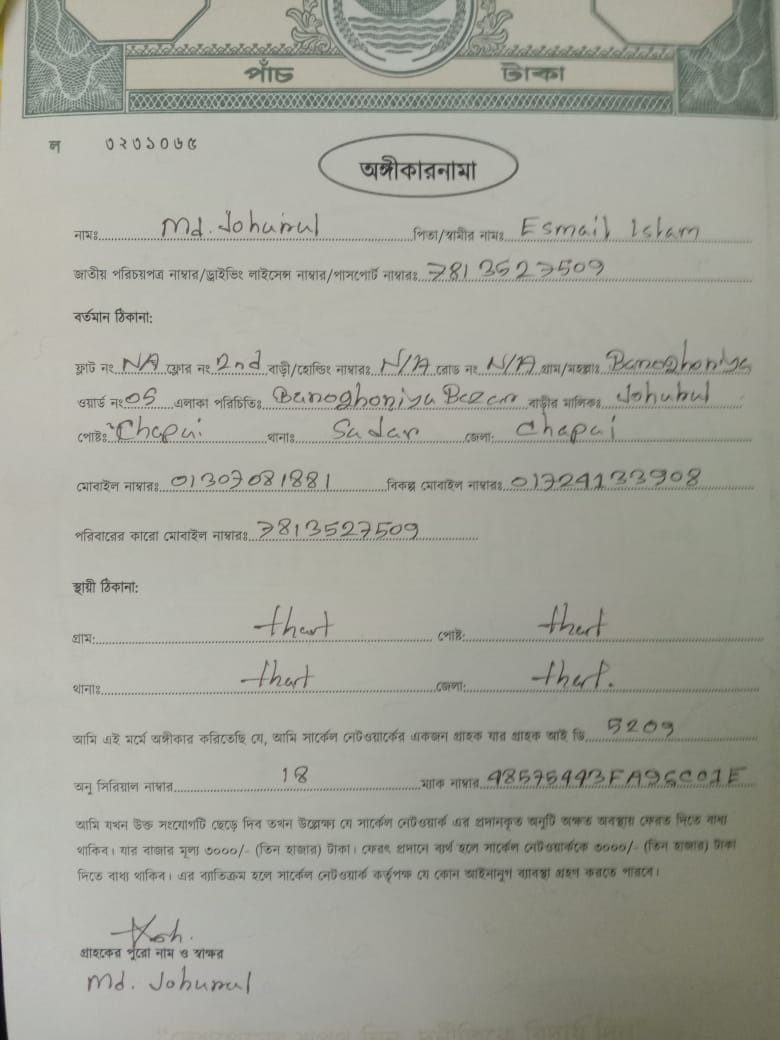 পাঁচ টাকা
ল ০২৩১০৬৫
অঙ্গীকারনামা
নামঃ Md. Johurul পিতা/স্বামীর নামঃ Esmail Islam
জাতীয় পরিচয়পত্র নাম্বার/ড্রাইভিং লাইসেন্স নাম্বার/পাসপোর্ট নাম্বারঃ 7813527509
বর্তমান ঠিকানা:
ফ্লাট নং NA ফ্লোর নং 2nd বাড়ী/হোল্ডিং নাম্বারঃ N/A রোড নং N/A গ্রাম/মহল্লাঃ Baroghoniya
ওয়ার্ড নং 05 এলাকা পরিচিতিঃ Baroghoniya Bazar বাড়ীর মালিকঃ Johurul
পোষ্টঃ Chapai থানাঃ Sadar জেলা: Chapai
মোবাইল নাম্বারঃ 01307081881 বিকল্প মোবাইল নাম্বারঃ 01724133908
পরিবারের কারো মোবাইল নাম্বারঃ 7813527509
স্থায়ী ঠিকানা:
গ্রাম: পোষ্ট:
থানাঃ জেলা:
আমি এই মর্মে অঙ্গীকার করিতেছি যে, আমি সার্কেল নেটওয়ার্কের একজন গ্রাহক যার গ্রাহক আই ডি 5209
অনু সিরিয়াল নাম্বার 18 ম্যাক নাম্বার 48575443FA9SC01E
আমি যখন উক্ত সংযোগটি ছেড়ে দিব তখন উল্লেক্ষ্য যে সার্কেল নেটওয়ার্ক এর প্রদানকৃত অনুটি অক্ষত অবস্থায় ফেরত দিতে বাধ্য
থাকিব। যার বাজার মূল্য ৩০০০/- (তিন হাজার) টাকা। ফেরৎ প্রদানে ব্যর্থ হলে সার্কেল নেটওয়ার্ককে ৩০০০/- (তিন হাজার) টাকা
দিতে বাধ্য থাকিব। এর ব্যতিক্রম হলে সার্কেল নেটওয়ার্ক কর্তৃপক্ষ যে কোন আইনানুগ ব্যবস্থা গ্রহণ করতে পারবে।
গ্রাহকের পুরো নাম ও স্বাক্ষর
Md. Johurul